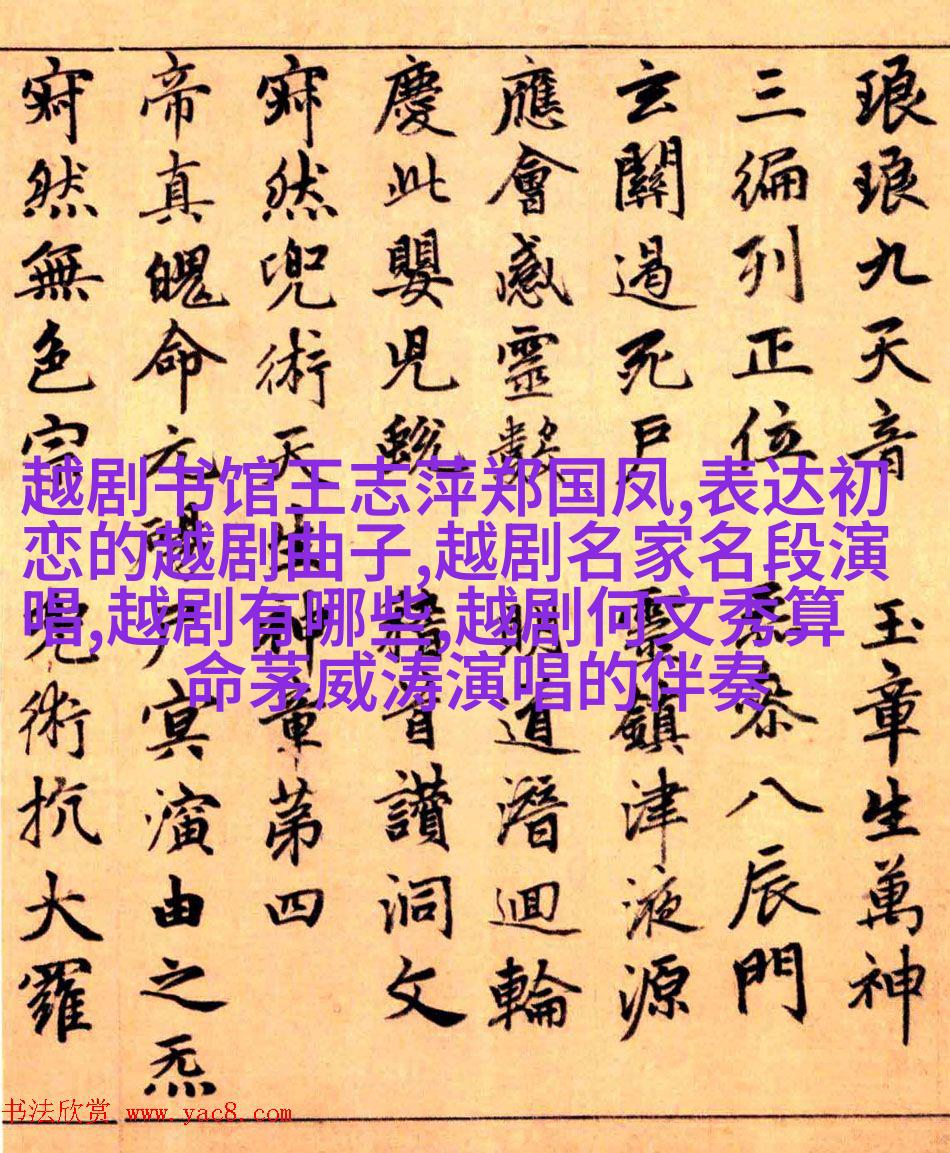 琅琅九天音 玉章生萬神
三編列正位 炁 八辰門
玄關過死戶 靈鎮津液源
應會感靈數 明道潛迴輪
慶此嬰兒 首讚洞文
寂然兜術天生神章第四
帝真魄命元 冥演由之炁
寂然無色宗 兜術抗大羅
越剧书馆王志萍郑国凤,表达初
恋的越剧曲子,越剧名家名段演
唱,越剧有哪些,越剧何文秀算
命茅威涛演唱的伴奏
书法欣赏 www.yac8.com